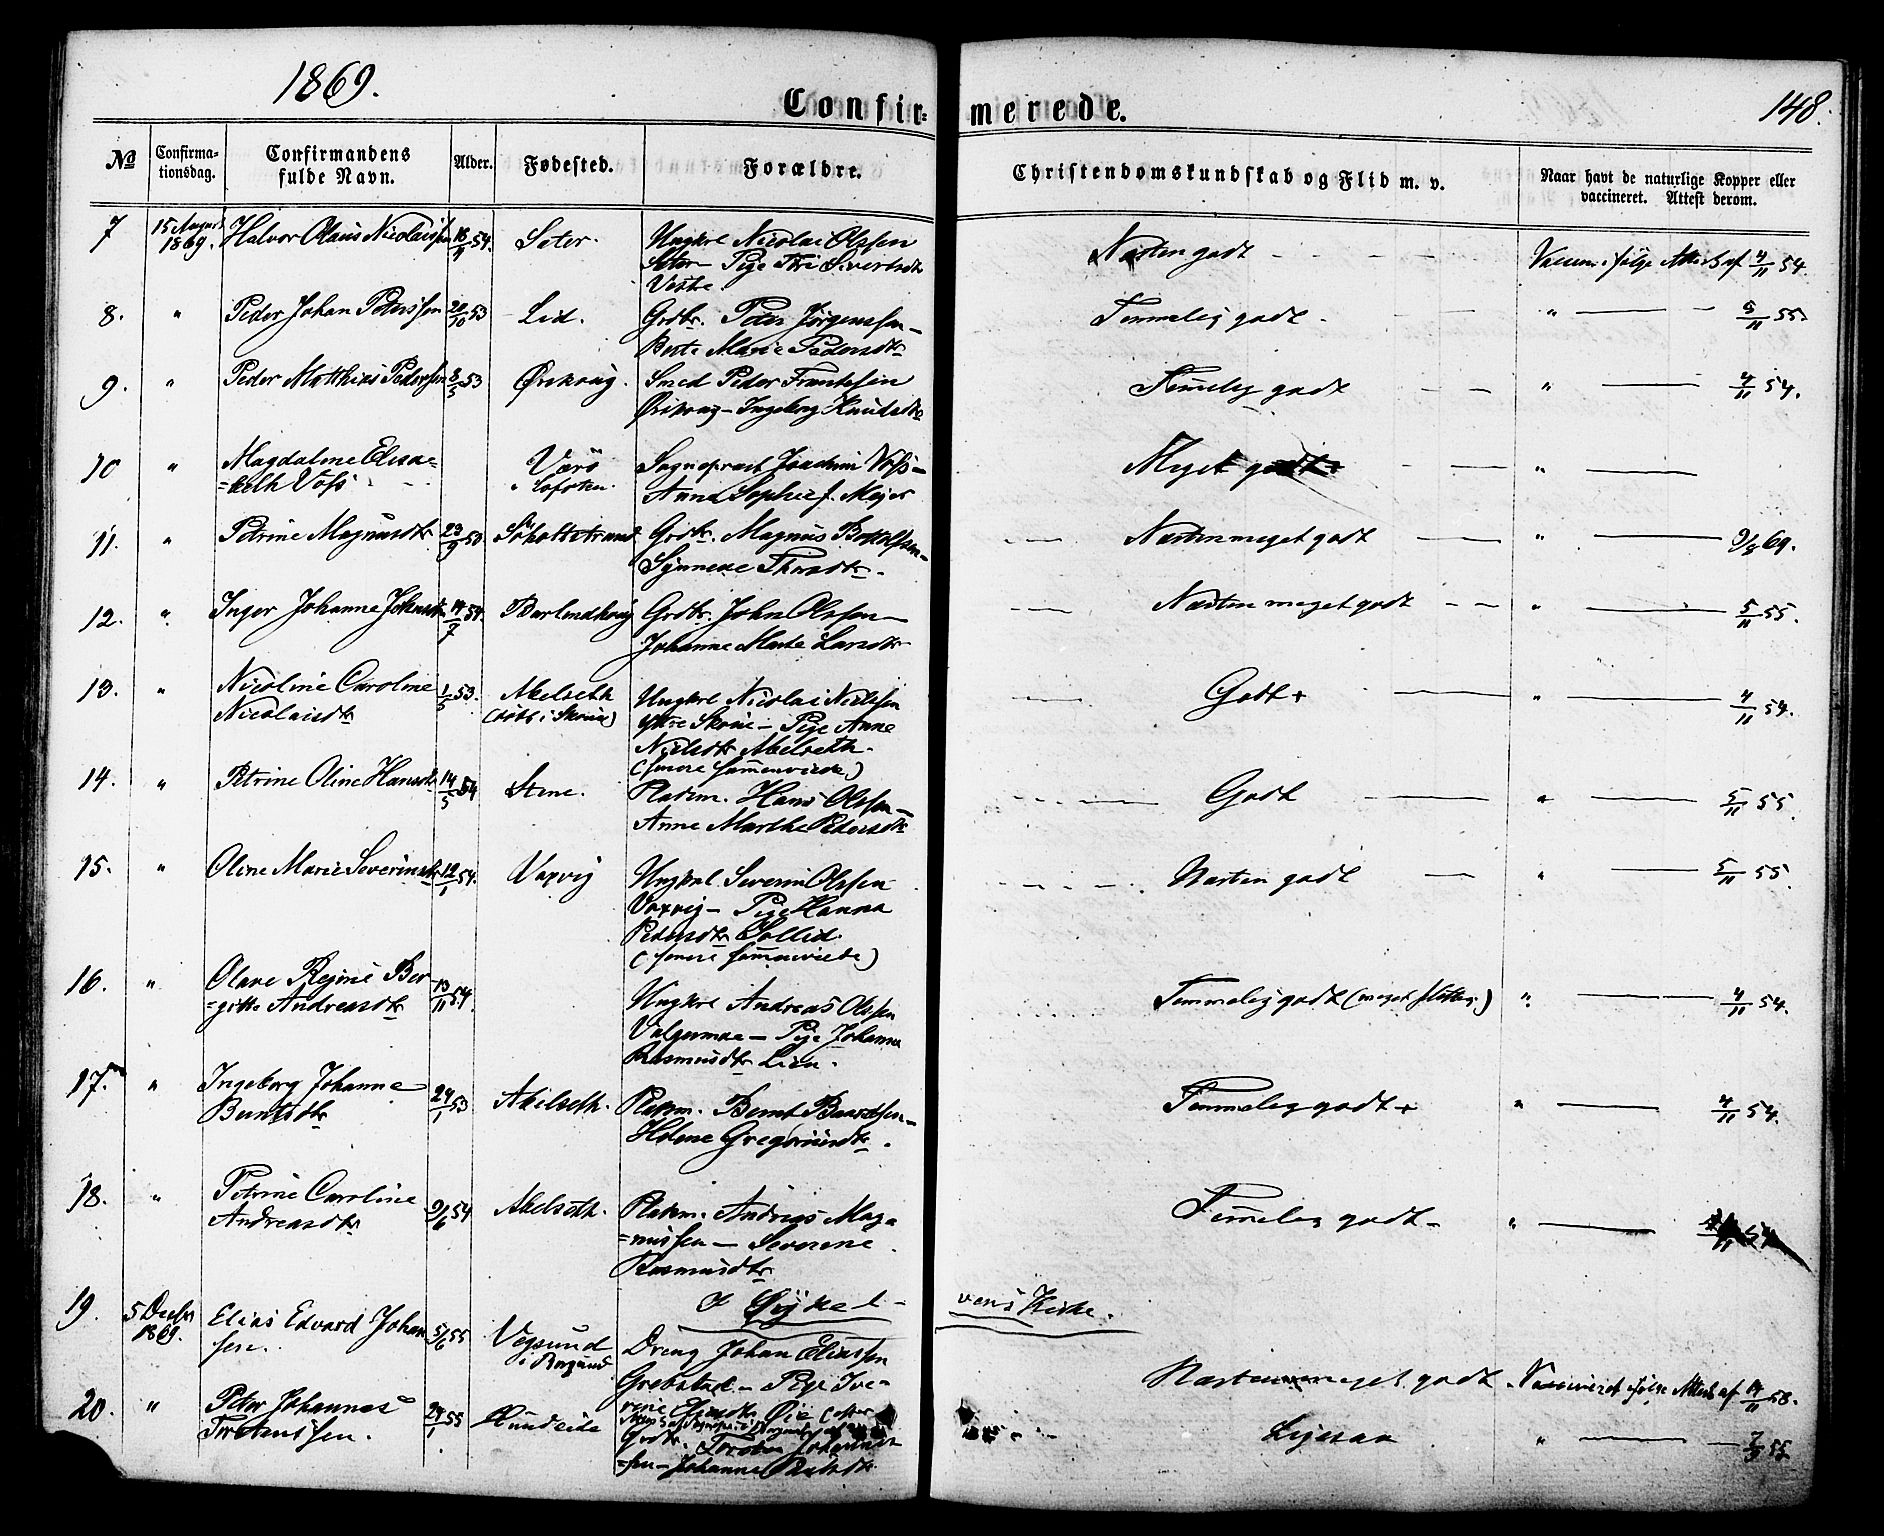 1869.
148.
Confir= merede.
No Confirma-tionsdag. Confirmandens fulde Navn. Alder. Fødested. Forældre. Christendomskundskab og Flid m. v. Naar havt de naturlige Kopper eller vaccineret. Attest derom.
7 15 August 1869. Halvor Olaus Nicolaissen 54. Seter. Ungkrl Nicolai Olssen
Seter - Pige Sivertsdtr
Vestre
Næsten godt Vaccin. ifølge Attest af 4/11 54.
8. " Peder Johan Peterssen 20/10 53 Lid. Grdbr. Peter Jørgenssen -
Berte Marie Pedersdtr
Temmelig godt. " 5/11 55
9. " Peder Matthias Pedersen 8/5 53 Ørskoug. Smed Peder Frantssen
Ørskoug - Ingeborg Knudsdtr
Temmelig godt " 4/11 54.
10 " Magdalene Elisa=
=beth Voss Værø
i Lofoten. Sognepræst Joachim Voss -
Anna Sophie f. Mejer
Meget godt "
11. " Petrine Magnusdtr 23/9 53. Magnus
Synneve
Næsten meget godt " 9/8 69.
12. " Inger Johanne Johnsdtr 14/7 54. Grdbr. John Olssen -
Johanne Marte Larsdtr
Næsten meget godt " 5/11 55.
13. " Nicoline Caroline
Nicolaisdtr 1/5 53. Akelseth
(døbt i Skoue) Ungkrl Nicolai Nielssen
Ytre Skoue - Pige Anne
Nielsdtr Akelseth.
(senere sammenviede)
Godt + " 4/11 54.
14. " Petrine Oline Hansdtr 14/5 54 Stene. Pladsm. Hans Olssen -
Anne Marthe Pedersdtr
Godt " 5/11 55.
15. " Oline Marie Severinsdtr 12/1 54. Vaxvig Ungkrl. Severin Olssen
Vaxvig - Pige Hanna
Pedersdtr Sollid.
(senere sammenviede)
Næsten godt " 5/11 55
16. " Olave Regine Ber
=gitte Andreasdtr 13/11 54. Ungkrl Andreas Olssen
Valgermoe - Pige Johanne
Rasmusdtr Lien.
Temmelig godt (meget flittig.) " 4/11 54.
17. " Ingeborg Johanne
Berntsdtr 24/1 53 Akelseth. Pladsm. Bernt Baardsen -
Helene Gregoriusdtr.
Temmelig godt + " 4/11 54.
18. " Petrine Caroline
Andreasdtr 9/6 54 Akelseth. Pladsm. Andreas Mag=
=nussen - Severine
Rasmusdtr
Temmelig godt - " 54
I Syke l- vens Kirke.
19. 5 Decbr 1869. Elias Edvard Johan
sen. 5/6 55 Vegsund
i Borgund Dreng Johan Eliassen
Grebstad - Pige Ive=
Næsten meget godt Vaccineret ifølge Attest af 58.
20. " Peter Johannes
Torstenssen. 24/1 55 Grdbr. Torsten Johannes
=sen - Johanne
" 55